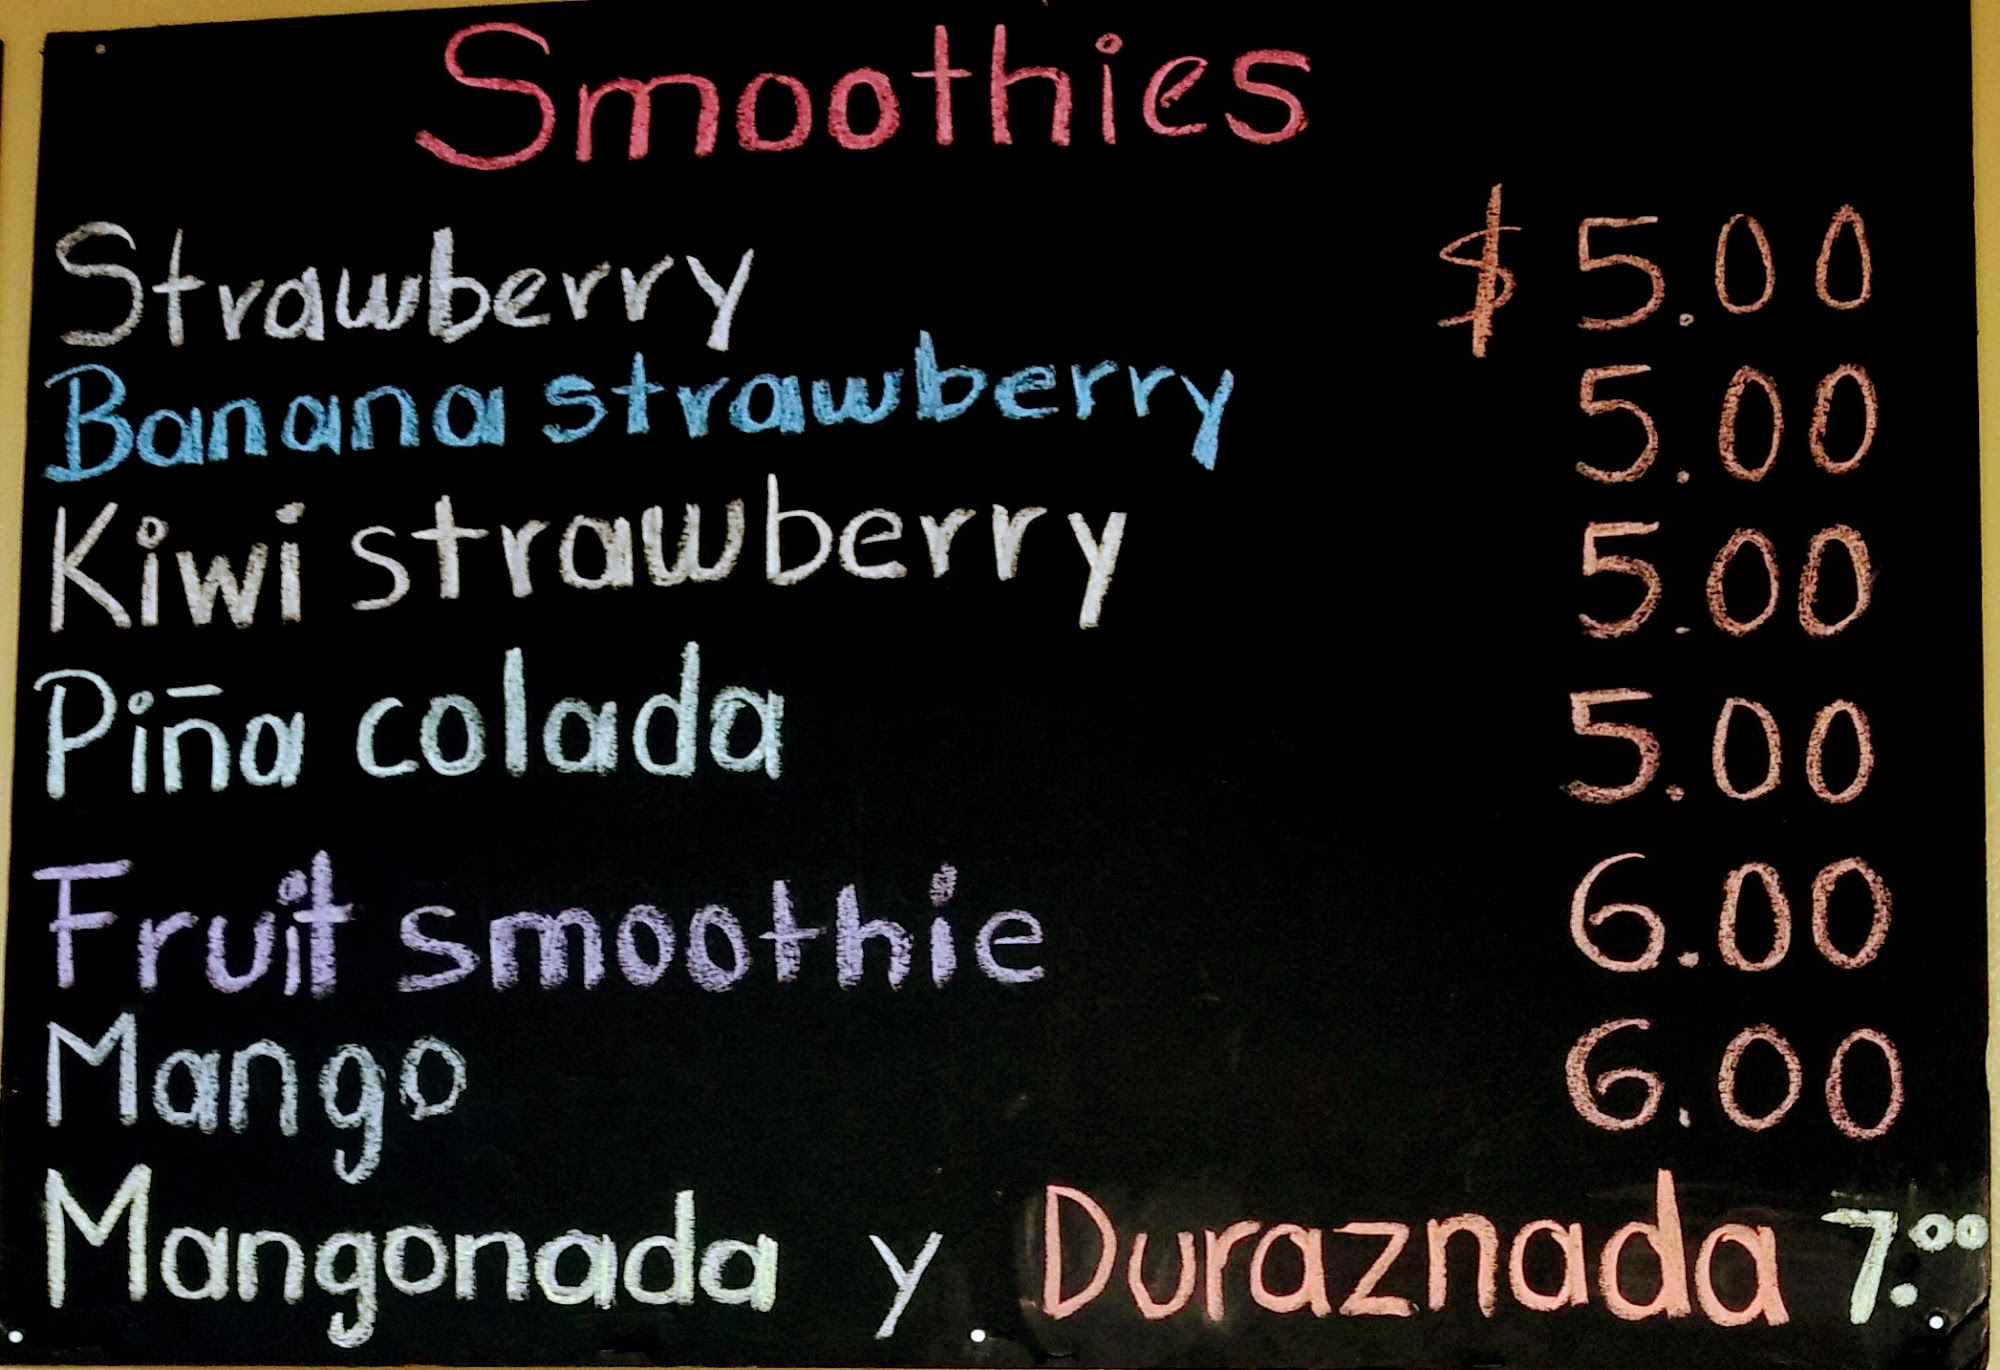 Smoothies
Strawberry $5.00
Banana strawberry 5.00
Kiwi strawberry 5.00
Piña colada 5.00
Fruit smoothie 6.00
Mango 6.00
Mangonada y Duraznada 7.00